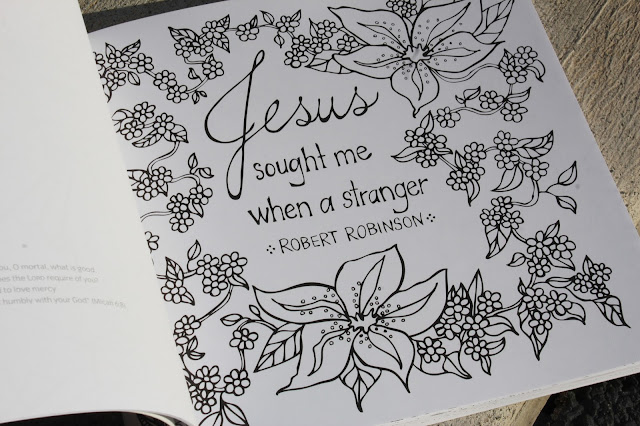 ou, O mortal, what is good
oes the Lord require of you
d to love mercy
t humbly with your God?
Jesus
sought me
when a stranger
ROBERT ROBINSON